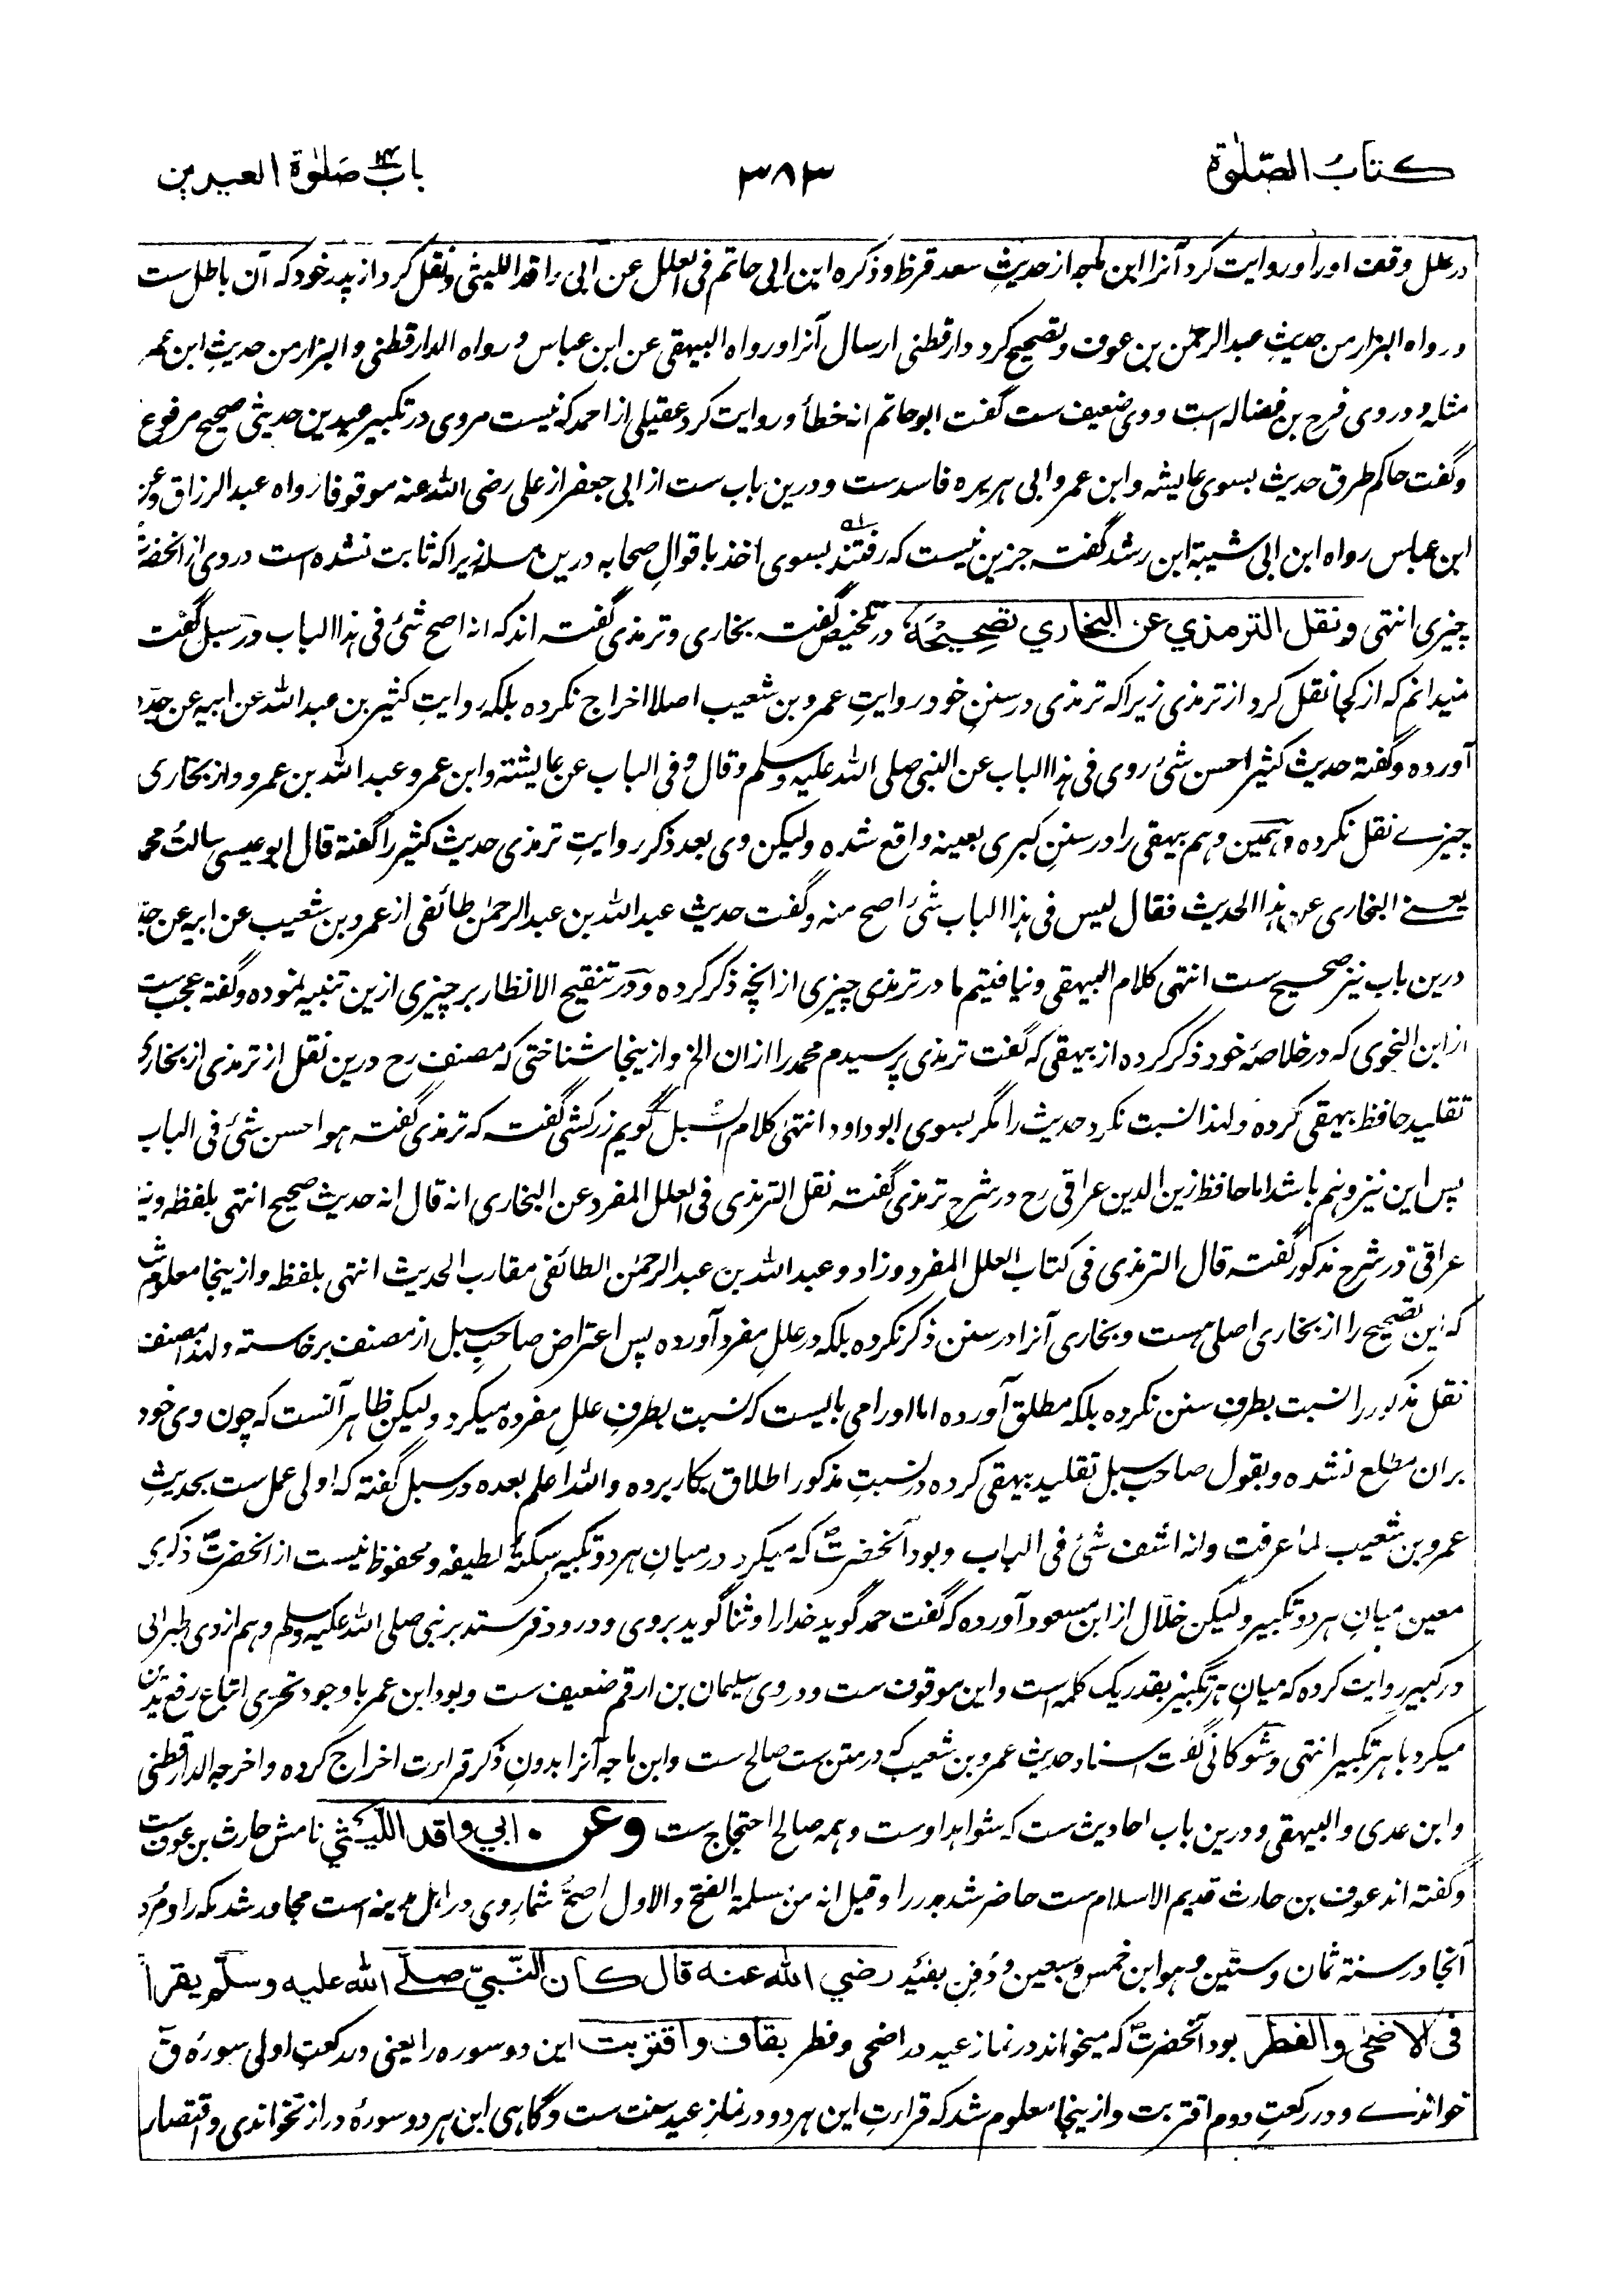 كتاب الصّلوٰة
٣٨٣
باب صَلوٰة العيدين
در علل وقف او را و روایت کرد آنرا ابن ماجه از حدیثِ سعد قرظ و ذکره ابن ابی حاتم فی العلل عن ابی واقد اللیثی و نقل کرد از پدر خود که آن باطل ست
و رواه البزار من حدیثِ عبدالرحمٰن بن عوف و تصحیح کرد دارقطنی ارسال آنرا و رواه البیهقی عن ابن عباس و رواه الدارقطنی و البزار من حدیثِ ابن عمر
مثله و در وی فرج بن فضاله است و وی ضعیف ست گفت ابو حاتم انه خطأ و روایت کرد عقیلی از احمد که نیست مروی در تکبیر عیدین حدیثی صحیح مرفوع
و گفت حاکم طرق حدیث بسوی عایشه و ابن عمر و ابی هریره فاسد ست و درین باب ست از ابی جعفر از علی رضی الله عنه موقوفا رواه عبد الرزاق و عن
ابن عباس رواه ابن ابی شیبة ابن رشد گفت جزین نیست که رفتند بسوی اخذ باقوالِ صحابه درین مسئله زیرا که ثابت نشده است در وی از آنحضرتؐ
چیزی انتهی و نقل الترمذي عن البخاري تصحيحه در تلخیص گفت بخاری و ترمذی گفته اند که انه اصح شئ فی هذا الباب در سبل گفت
نمیدانم که از کجا نقل کرد از ترمذی زیرا که ترمذی در سننِ خود روایتِ عمرو بن شعیب اصلا اخراج نکرده بلکه روایتِ کثیر بن عبدالله عن ابیه عن جده
آورده و گفته حدیث کثیر احسن شئ روی فی هذا الباب عن النبی صلی الله علیه وسلم و قال و فی الباب عن عایشة و ابن عمر و عبدالله بن عمرو و از بخاری
چیزے نقل نکرده و همین وهم بیهقی را در سننِ کبری بعینه واقع شده ولیکن وی بعد ذکر روایتِ ترمذی حدیث کثیر را گفته قال ابو عیسی سالتُ محمدا
یعنے البخاری عن هذا الحدیث فقال لیس فی هذا الباب شئ اصح منه و گفت حدیث عبدالله بن عبدالرحمٰن طائفی از عمرو بن شعیب عن ابیه عن جده
درین باب نیز صحیح ست انتهی کلام البیهقی و نیافتیم ما در ترمذی چیزی از انچه ذکر کرده و در تنقیح الانظار بر چیزی ازین تنبیه نموده و گفته عجب ست
از ابن النحوی که در خلاصهٔ خود ذکر کرده از بیهقی که گفت ترمذی پرسیدم محمد را از ان الخ و ازینجا شناختی که مصنف رح درین نقل از ترمذی از بخاری
تقلید حافظ بیهقی کرده و لهذا نسبت نکرد حدیث را مگر بسوی ابو داود انتهیٰ کلام السبل گویم زرکشی گفت که ترمذی گفت هو احسن شئ فی الباب
پس این نیز وهم باشد اما حافظ زین الدین عراقی رح در شرحِ ترمذی گفته نقل الترمذی فی العلل المفرد عن البخاری انه قال انه حدیث صحیح انتهی بلفظه و نیز
عراقی در شرح مذکور گفته قال الترمذی فی کتاب العلل المفرد و زاد و عبدالله بن عبدالرحمٰن الطائفی مقارب الحدیث انتهی بلفظه و ازینجا معلوم شد
که این تصحیح را از بخاری اصلی هست و بخاری آنرا در سنن ذکر نکرده بلکه در عللِ مفرد آورده پس اعتراض صاحبِ سبل از مصنف برخاسته و لهذا مصنف
نقل مذکور را نسبت بطرفِ سنن نکرده بلکه مطلق آورده اما او را می بایست که نسبت بطرفِ عللِ مفرده میکرد ولیکن ظاهر آنست که چون وی خود
بران مطلع نشده و بقول صاحب سبل تقلید بیهقی کرده در نسبتِ مذکور اطلاق بکار برده و الله اعلم بعده در سبل گفته که اولی عمل ست بحدیثِ
عمرو بن شعیب لما عرفت و انه اشف شئ فی الباب و بود آنحضرتؐ که میکرد در میانِ هر دو تکبیر سکتهٔ لطیفه و محفوظ نیست از آنحضرتؐ ذکری
معین میانِ هر دو تکبیر ولیکن خلّال از ابن مسعود آورده که گفت حمد گوید خدا را و ثنا گوید بروی و درود فرستد بر نبی صلی الله علیه وسلم و هم از وی طبرانی
در کبیر روایت کرده که میانِ هر تکبیر بقدر یک کلمه است و این موقوف ست و در وی سلیمان بن ارقم ضعیف ست و بود ابن عمر با وجود تحری اتباع رفع یدین
میکرد با هر تکبیر انتهی و شوکانی گفت اسناد حدیث عمرو بن شعیب که در متن ست صالح ست و ابن ماجه آنرا بدونِ ذکر قرارت اخراج کرده و اخرجه الدارقطنی
و ابن عدی و البیهقی و درین باب احادیث ست که شواهد اوست و همه صالح احتجاج ست وعن ابي واقد الليثي نامش حارث بن عوف ست
و گفته اند عوف بن حارث قدیم الاسلام ست حاضر شد بدر را و قیل انه من مسلمة الفتح و الاول اصحّ شمارِ وی در اهلِ مدینه است مجاور شد مکه را و مُرد
آنجا در سنة ثمان و ستین و هو ابن خمس و سبعین و دُفِن بفئید رضي الله عنه قال كان النبيّ صلّے الله عليه وسلّم يقرأ
فى الاضحٰى والفطر بود آنحضرتؐ که میخواند در نماز عید در اضحی و فطر بقاف واقتربت این دو سوره را یعنی در رکعتِ اولی سورهٔ قٓ
خواندے و در رکعتِ دوم اقتربت و ازینجا معلوم شد که قرارتِ این هر دو در نمازِ عید سنت ست و گاهی این هر دو سورهٔ دراز نخواندی و اقتصار